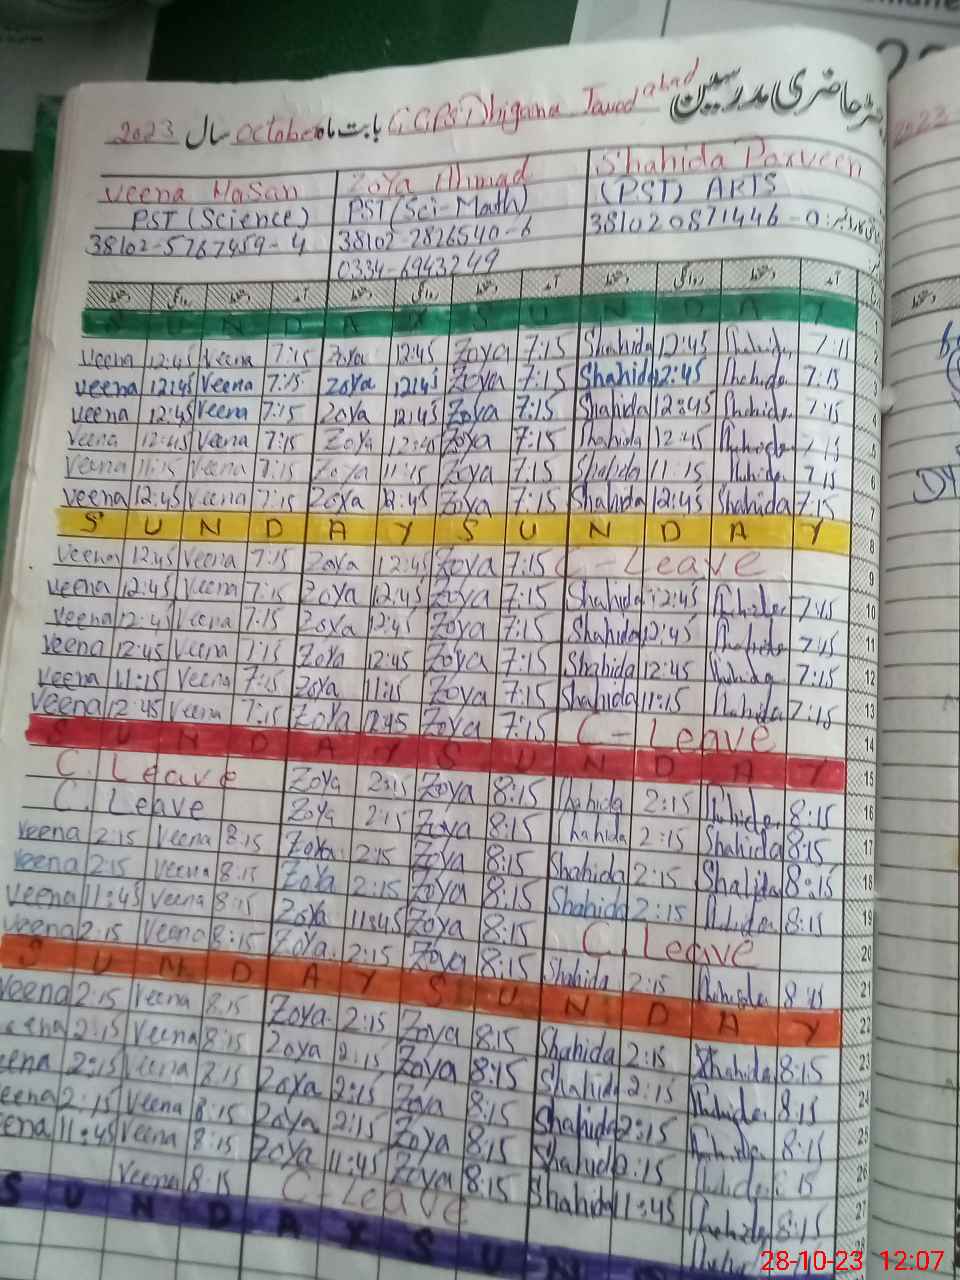 رجسٹر حاضری مدرسین GGPS Dhigana Jawadabad بابت ماہ October سال 2023
Veena Hasan Zoya Ahmad Shahida Parveen
PST (Science) PST (Sci-Math) (PST) ARTS
38102-5767459-4 38102-2826540-6 381020871446-0
0334-6943249
دستخط روانگی دستخط آمد دستخط روانگی دستخط آمد دستخط روانگی دستخط آمد
S U N D A Y S U N D A Y 1
Veena 12:45 Veena 7:15 Zoya 12:45 Zoya 7:15 Shahida 12:45 Shahida 7:15 2
Veena 12:45 Veena 7:15 Zoya 12:45 Zoya 7:15 Shahida 12:45 Shahida 7:15 3
Veena 12:45 Veena 7:15 Zoya 12:45 Zoya 7:15 Shahida 12:45 Shahida 7:15 4
Veena 12:45 Veena 7:15 Zoya 12:45 Zoya 7:15 Shahida 12:45 Shahida 7:15 5
Veena 11:15 Veena 7:15 Zoya 11:15 Zoya 7:15 Shahida 11:15 Shahida 7:15 6
Veena 12:45 Veena 7:15 Zoya 12:45 Zoya 7:15 Shahida 12:45 Shahida 7:15 7
S U N D A Y S U N D A Y 8
Veena 12:45 Veena 7:15 Zoya 12:45 Zoya 7:15 C-Leave 9
Veena 12:45 Veena 7:15 Zoya 12:45 Zoya 7:15 Shahida 12:45 Shahida 7:15 10
Veena 12:45 Veena 7:15 Zoya 12:45 Zoya 7:15 Shahida 12:45 Shahida 7:15 11
Veena 12:45 Veena 7:15 Zoya 12:45 Zoya 7:15 Shahida 12:45 Shahida 7:15 12
Veena 11:15 Veena 7:15 Zoya 11:15 Zoya 7:15 Shahida 11:15 Shahida 7:15 13
Veena 12:45 Veena 7:15 Zoya 12:45 Zoya 7:15 C-Leave 14
S U N D A Y S U N D A Y 15
C. Leave Zoya 2:15 Zoya 8:15 Shahida 2:15 Shahida 8:15 16
C. Leave Zoya 2:15 Zoya 8:15 Shahida 2:15 Shahida 8:15 17
Veena 2:15 Veena 8:15 Zoya 2:15 Zoya 8:15 Shahida 2:15 Shahida 8:15 18
Veena 2:15 Veena 8:15 Zoya 2:15 Zoya 8:15 Shahida 2:15 Shahida 8:15 19
Veena 11:45 Veena 8:15 Zoya 11:45 Zoya 8:15 C. Leave 20
Veena 2:15 Veena 8:15 Zoya 2:15 Zoya 8:15 Shahida 2:15 Shahida 8:15 21
S U N D A Y S U N D A Y 22
Veena 2:15 Veena 8:15 Zoya 2:15 Zoya 8:15 Shahida 2:15 Shahida 8:15 23
Veena 2:15 Veena 8:15 Zoya 2:15 Zoya 8:15 Shahida 2:15 Shahida 8:15 24
eena 2:15 Veena 8:15 Zoya 2:15 Zoya 8:15 Shahida 2:15 Shahida 8:15 25
eena 2:15 Veena 8:15 Zoya 2:15 Zoya 8:15 Shahida 2:15 Shahida 8:15 26
ena 11:45 Veena 8:15 Zoya 11:45 Zoya 8:15 Shahida 11:45 Shahida 8:15 27
Veena 8:15 C-Leave 28
S U N D A Y S U N
28-10-23 12:07
2023